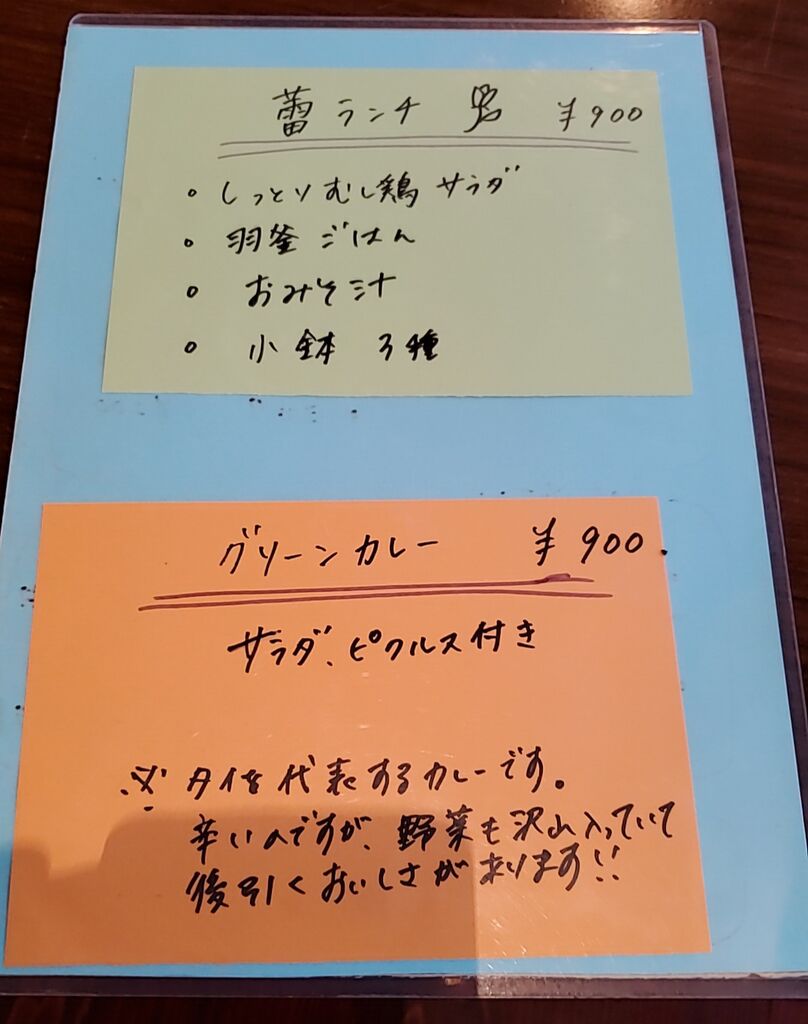 蕾ランチ ¥900
○ しっとりむし鶏サラダ
○ 羽釜ごはん
○ おみそ汁
○ 小鉢 3種
グリーンカレー ¥900.
サラダ、ピクルス付き
※ タイを代表するカレーです。
辛いのですが、野菜も沢山入っていて
後引くおいしさが来ります!!